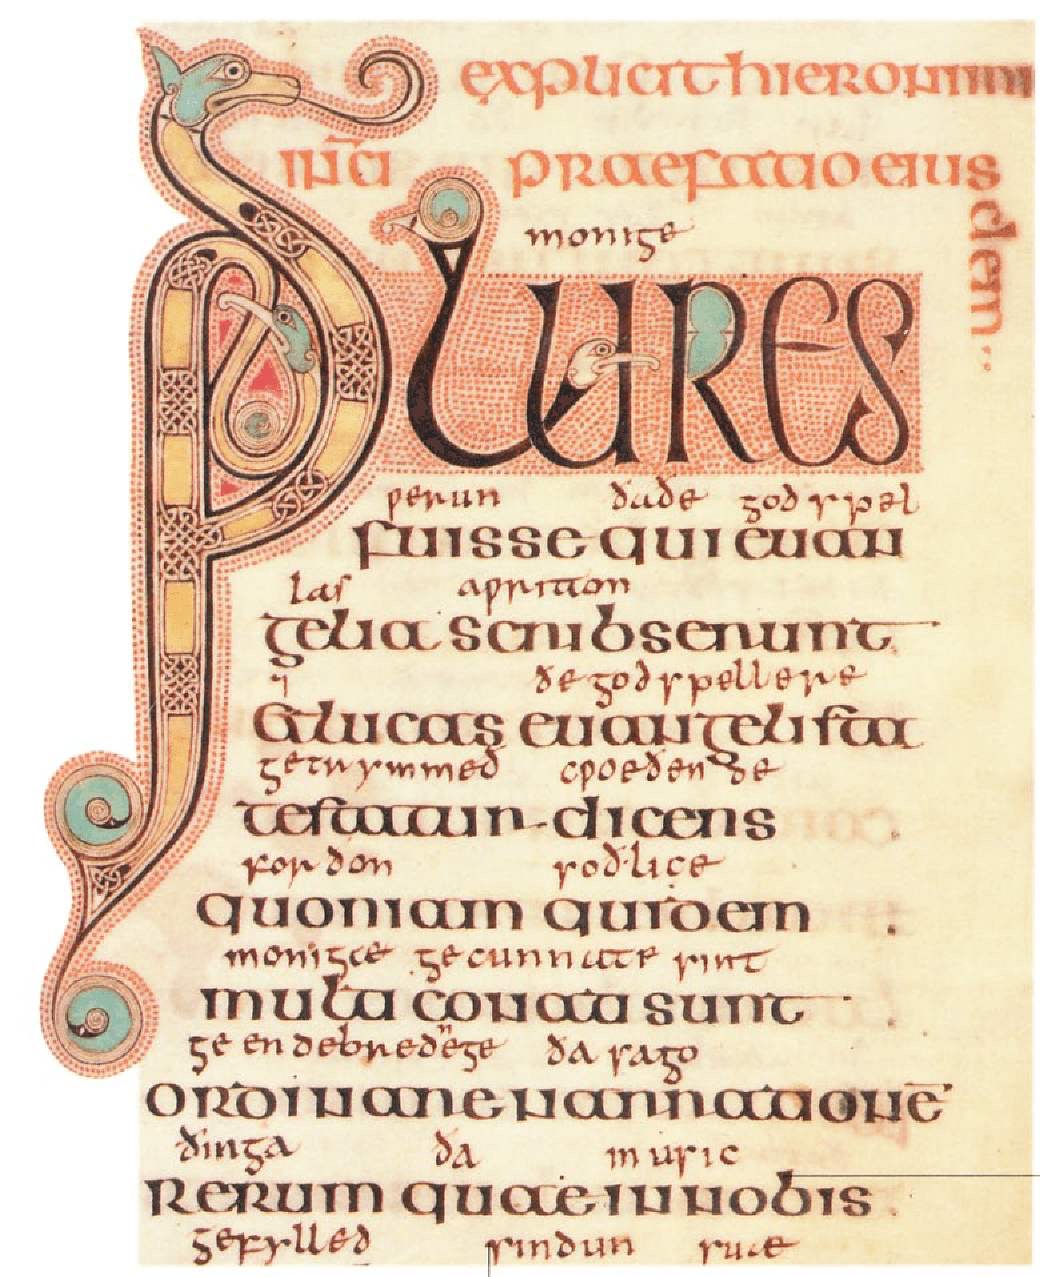 explicit hieronimi
incipit praefatio eius
dem
monige
PLURES
perun ðaðe godspel
fuisse qui euan
las auritton
gelia scribserunt
⁊ ðe godspellere
et lucas euangelista
getrymmeð cuoeðende
testatur dicens
forðon soðlice
quoniam quidem
monigæ gecunnate sint
multi conati sunt
ge endebrednege ða sago
ordinare narrationē
ðinga ða in usic
rerum quae in nobis
gefylled sindun